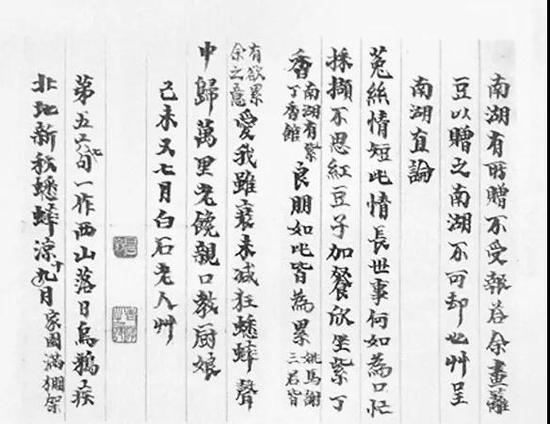 南湖有所贈不受報荅余畫籬
豆以贈之南湖不可却也艸呈
南湖直論
菟絲情短此情長世事何如為口忙
採擷不思紅豆子加餐欣坐紫丁
香南湖有紫丁香館良朋如此皆為累姚馬謝三君皆
有欲累余之意愛我雖衰未減狂蟋蟀聲
中歸萬里老饞親口教厨娘
己未又七月白石老人艸
第五六句一作西山落日烏鴉疾
北地新秋蟋蟀涼九十月家園滿棚架